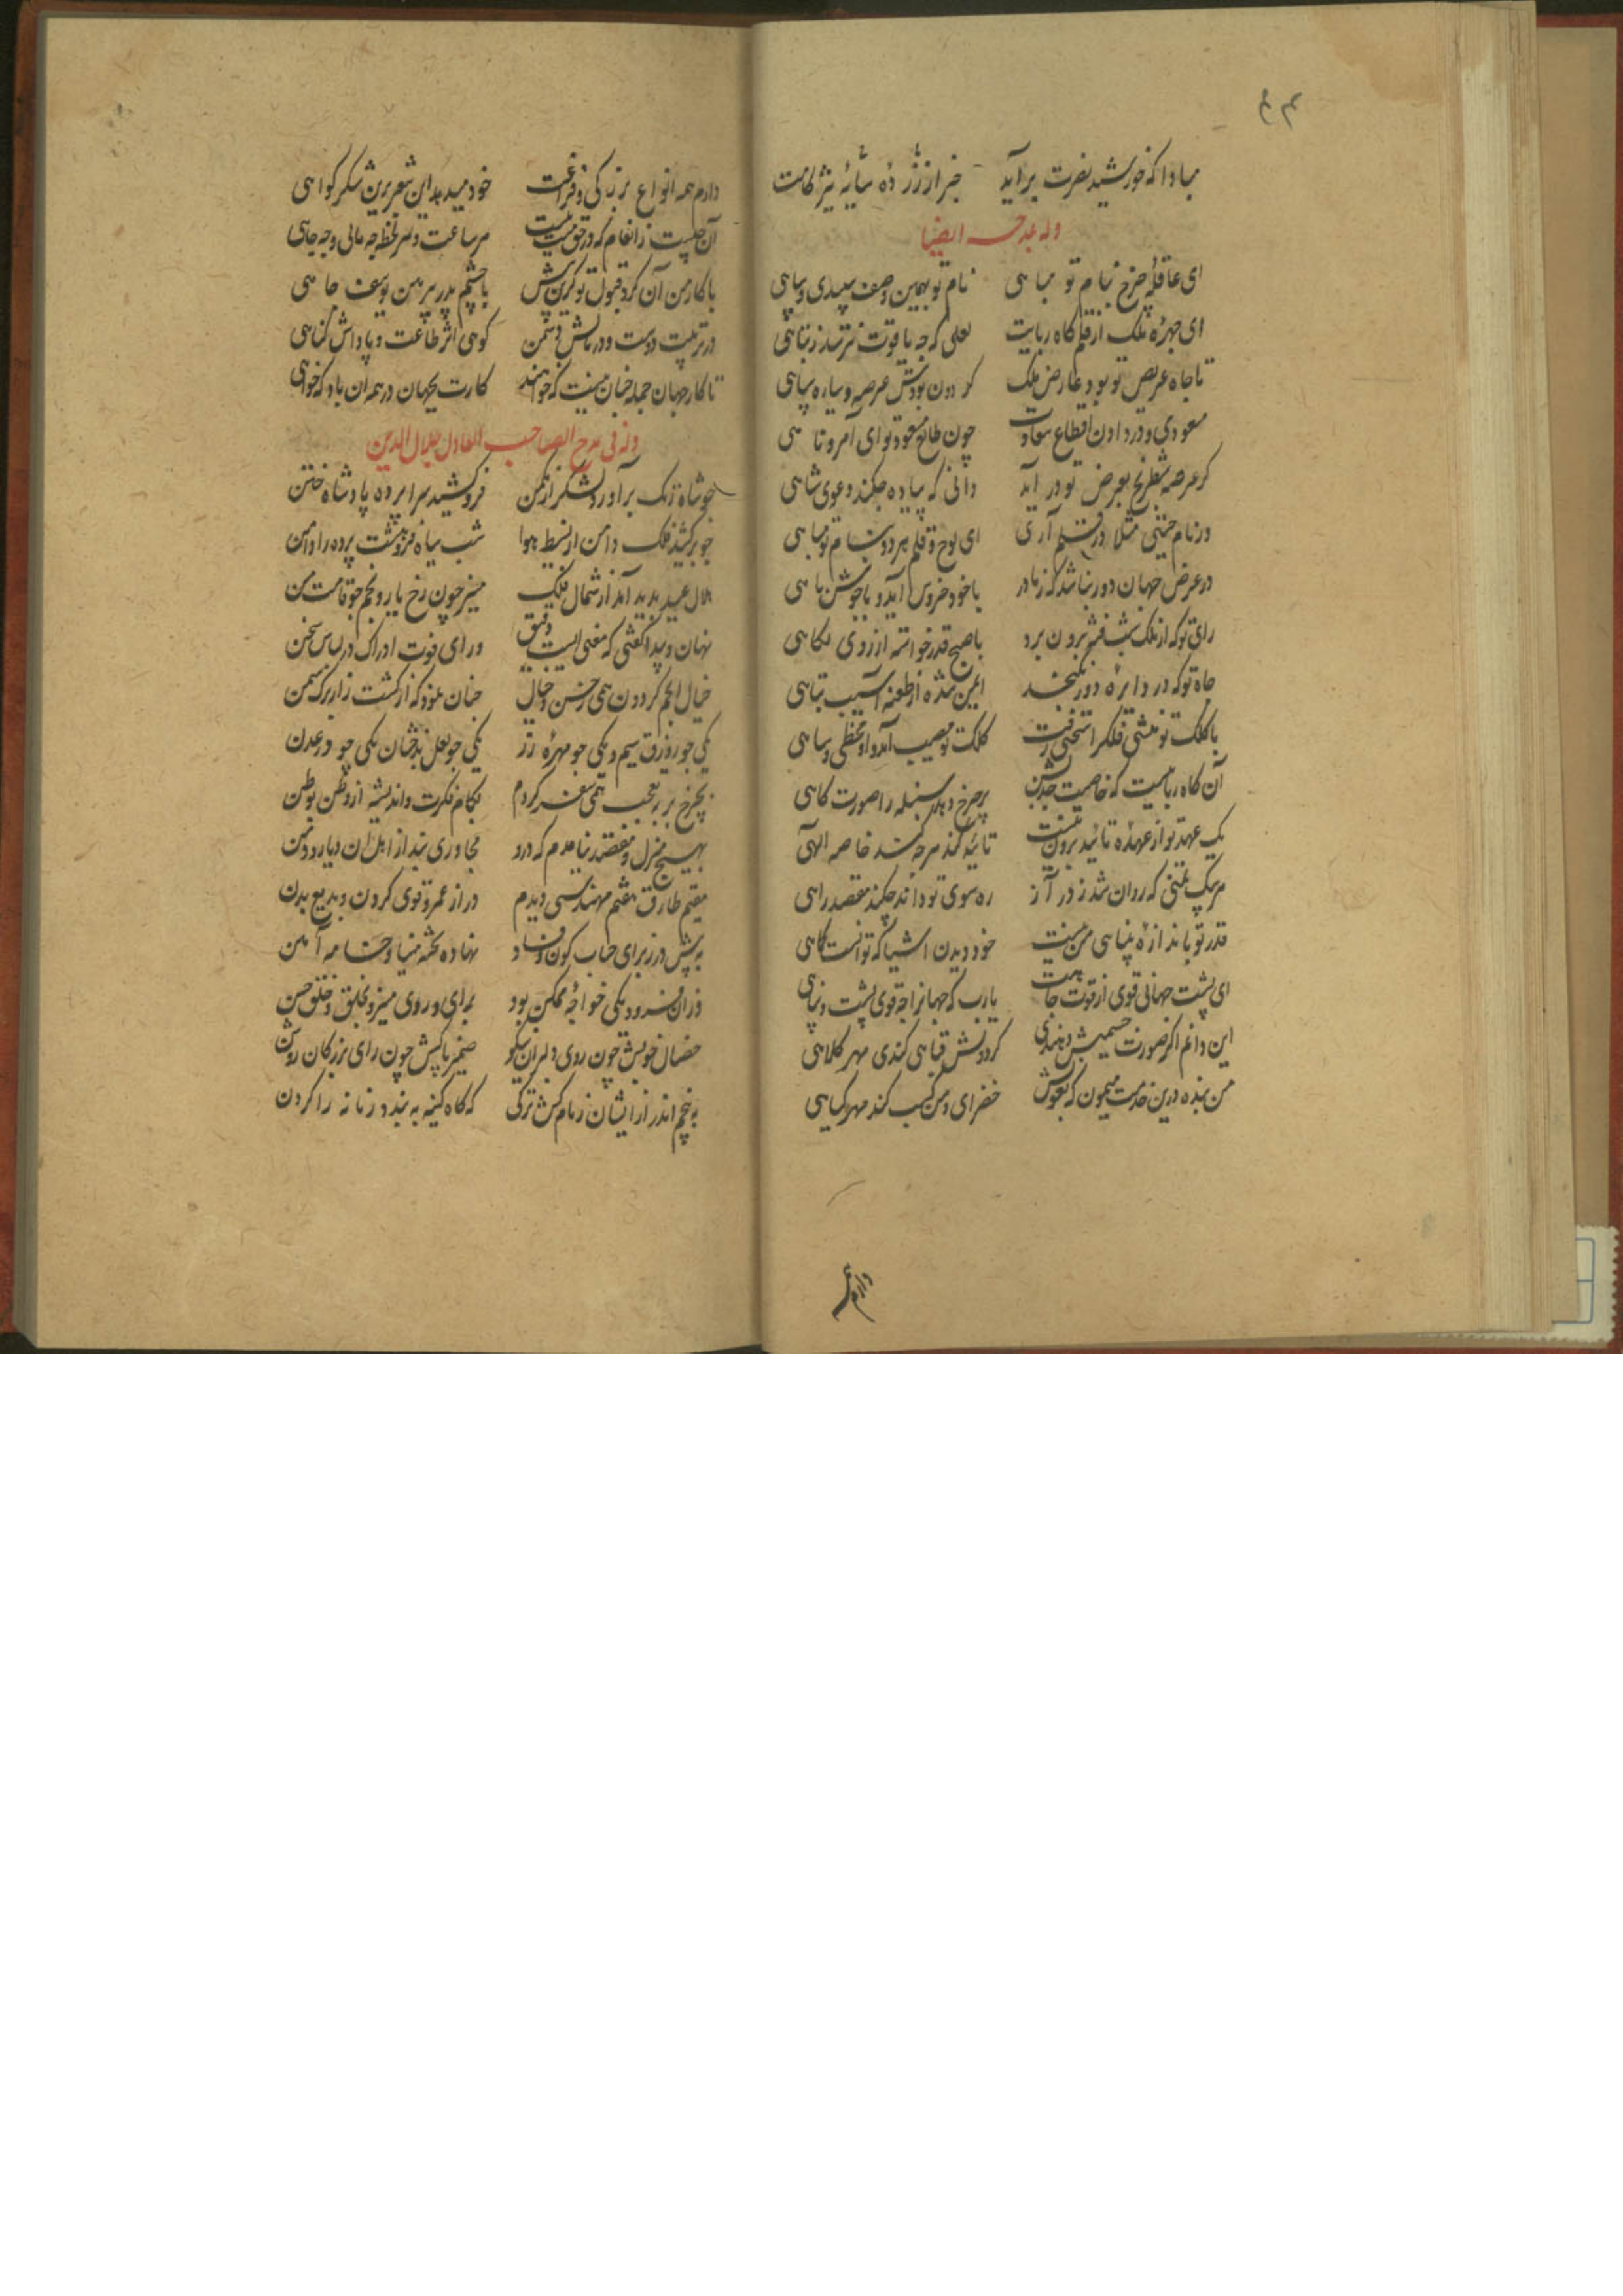 مبادا که خورشید نصرت برآید خبر از زر ده سایهٔ نیز نامت
وله یمدحه ایضا
ای عاقلهٔ چرخ بنام تو مباهی نام تو بهین وصف سپیدی و سیاهی
ای چهرهٔ ملک از قلم کاه ربایت لعلی که چو یاقوت نترسد ز تباهی
تا جاه عریض تو بود عارض ملک گردون بودش عرصه و سیاره سپاهی
مسعودی و در دادن اقطاع سعادت چون طالع مسعود تو ای آمر و ناهی
گر عرصه شطرنج بعرض تو در آید دانی که پیاده چکند دعوی شاهی
ور نام جنینی مثلا در قلم آری ای لوح و قلم هر دو بنام تو مباهی
در عرض جهان دور نباشد که ز مادر با خود خروس آید و با جوشن ماهی
رای تو که از ملک شب فتنه برون برد با صبح قدر خواسته از روی نکاهی
جاه تو که در دایره دور نگنجد ایمن شده از طعنه آسیب تباهی
با کلک تو منشی فلک را سخنی رفت کلک تو مصیب آمد و او مخطی و ساهی
آن کاه رباییست که خاصیت جذبش بر چرخ دهد سنبله را صورت کاهی
یک عهد تو از عهدهٔ تایید برون نیست تایید کند هر چه کند خاصه الهی
مریک تمنی که روان شد ز در آز ره سوی تو داند چکند مقصد راهی
قدر تو باندازه بینایی من نیست خود دیدن اشیا که توانست کماهی
ای پشت جهانی قوی از قوت جاهت یارب که جهان را چه قوی پشت و پناهی
این دانم اگر صورت جسمیش دهندی گردونش قبایی کندی مهر کلاهی
من بنده درین خدمت میمون که بعونش خضرای دمن کسب کند مهر گیاهی
دارم
دارم همه انواع بزرگی و فراغت خود میدهد این شعر برین شکر گواهی
آن چیست ز انعام که در حق منت نیست هر ساعت و هر لحظه چه مالی و چه جاهی
با کار من آن کرد قبول تو کزین پیش با چشم پدر پیرهن یوسف چاهی
در تربیت دوست و در مالش دشمن گویی اثر طاعت و پاداش گناهی
تا کار جهان جمله چنان نیست که خواهند کارت بجهان در همه آن باد که خواهی
وله فی مدح الصاحب العادل جلال الدین
چو شاه زنگ برآورد لشکر از مکمن فرو کشید سراپرده پادشاه ختن
چو برکشید فلک دامن از بسیط هوا شب سیاه فرو هشت پرده را دامن
هلال عید پدید آمد از شمال فلک منیر چون رخ یار و بخم چو قامت من
نهان و پیدا گفتی که معنی ایست دقیق ورای قوت ادراک در لباس سخن
خیال انجم گردون همی بحسن و جمال چنان نمود که از کشت زار برگ سمن
یکی چو زورق سیم و یکی چو مهرهٔ زر یکی چو لعل بدخشان یکی چو در عدن
بچرخ بر بتعجب همی سفر کردم بکام فکرت و اندیشه از وطن بوطن
بهیچ منزل و مقصد نیامدم که درو مجاوری نبد از اهل آن دیار و دمن
مقیم طارق هفتم مهندسی دیدم دراز عمر و قوی گردن و بدیع بدن
به پیش در ز برای حساب کون و فساد نهاده تخته مینا و خامه آهن
وزان فرود یکی خواجهٔ ممکن بود برای و روی منیر و بخلق و خلق حسن
خصال خوبش چون روی دلبران نیکو ضمیر پاکش چون رای بزرگان روشن
به پنجم اندر از ایشان زمام کش ترکی که گاه کینه به بندد زمانه را گردن